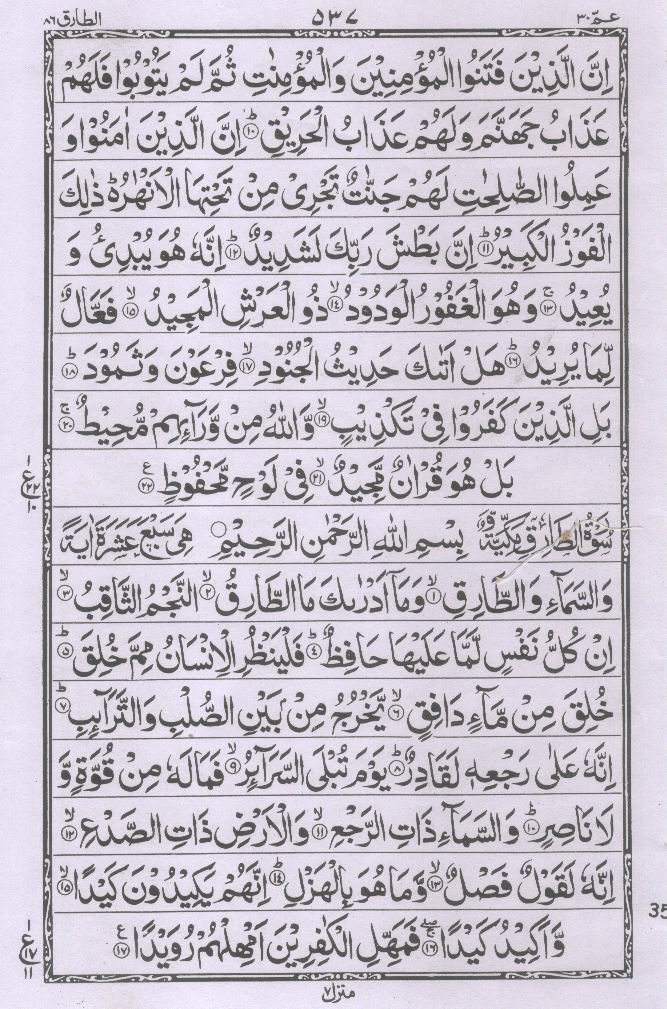 عمّ ٣٠ ٥٣٧ الطارق ٨٦
اِنَّ الَّذِيْنَ فَتَنُوا الْمُؤْمِنِيْنَ وَالْمُؤْمِنٰتِ ثُمَّ لَمْ يَتُوْبُوْا فَلَهُمْ
عَذَابُ جَهَنَّمَ وَلَهُمْ عَذَابُ الْحَرِيْقِ ؕ‏﴿۱۰﴾ اِنَّ الَّذِيْنَ اٰمَنُوْا وَ
عَمِلُوا الصّٰلِحٰتِ لَهُمْ جَنّٰتٌ تَجْرِيْ مِنْ تَحْتِهَا الْاَنْهٰرُ ؕ ذٰلِكَ
الْفَوْزُ الْكَبِيْرُ ؕ‏﴿۱۱﴾ اِنَّ بَطْشَ رَبِّكَ لَشَدِيْدٌ ؕ‏﴿۱۲﴾ اِنَّهٗ هُوَ يُبْدِئُ وَ
يُعِيْدُ ۚ‏﴿۱۳﴾ وَهُوَ الْغَفُوْرُ الْوَدُوْدُ ۙ‏﴿۱۴﴾ ذُو الْعَرْشِ الْمَجِيْدُ ۙ‏﴿۱۵﴾ فَعَّالٌ
لِّمَا يُرِيْدُ ؕ‏﴿۱۶﴾ هَلْ اَتٰىكَ حَدِيْثُ الْجُنُوْدِ ۙ‏﴿۱۷﴾ فِرْعَوْنَ وَثَمُوْدَ ؕ‏﴿۱۸﴾
بَلِ الَّذِيْنَ كَفَرُوْا فِيْ تَكْذِيْبٍ ۙ‏﴿۱۹﴾ وَّاللّٰهُ مِنْ وَّرَآئِهِمْ مُّحِيْطٌ ۚ‏﴿۲۰﴾
بَلْ هُوَ قُرْاٰنٌ مَّجِيْدٌ ۙ‏﴿۲۱﴾ فِيْ لَوْحٍ مَّحْفُوْظٍ ﴿۲۲﴾ ع
١ ع ٢٢ ١٠
سُوْرَةُ الطَّارِقِ مَكِّيَّةٌ بِسْمِ اللّٰهِ الرَّحْمٰنِ الرَّحِيْمِ ○ هِيَ سَبْعَ عَشَرَةَ اٰيَةً
وَالسَّمَآءِ وَالطَّارِقِ ۙ‏﴿۱﴾ وَمَآ اَدْرٰىكَ مَا الطَّارِقُ ۙ‏﴿۲﴾ النَّجْمُ الثَّاقِبُ ۙ‏﴿۳﴾
اِنْ كُلُّ نَفْسٍ لَّمَّا عَلَيْهَا حَافِظٌ ؕ‏﴿۴﴾ فَلْيَنْظُرِ الْاِنْسَانُ مِمَّ خُلِقَ ؕ‏﴿۵﴾
خُلِقَ مِنْ مَّآءٍ دَافِقٍ ۙ‏﴿۶﴾ يَّخْرُجُ مِنْ بَيْنِ الصُّلْبِ وَالتَّرَآئِبِ ؕ‏﴿۷﴾
اِنَّهٗ عَلٰى رَجْعِهٖ لَقَادِرٌ ؕ‏﴿۸﴾ يَوْمَ تُبْلَى السَّرَآئِرُ ۙ‏﴿۹﴾ فَمَا لَهٗ مِنْ قُوَّةٍ وَّ
لَا نَاصِرٍ ؕ‏﴿۱۰﴾ وَالسَّمَآءِ ذَاتِ الرَّجْعِ ۙ‏﴿۱۱﴾ وَالْاَرْضِ ذَاتِ الصَّدْعِ ۙ‏﴿۱۲﴾
اِنَّهٗ لَقَوْلٌ فَصْلٌ ۙ‏﴿۱۳﴾ وَّمَا هُوَ بِالْهَزْلِ ؕ‏﴿۱۴﴾ اِنَّهُمْ يَكِيْدُوْنَ كَيْدًا ۙ‏﴿۱۵﴾
35
وَّاَكِيْدُ كَيْدًا ۚۖ‏﴿۱۶﴾ فَمَهِّلِ الْكٰفِرِيْنَ اَمْهِلْهُمْ رُوَيْدًا ﴿۱۷﴾ ع
١ ع ١٧ ١١
منزل ٧